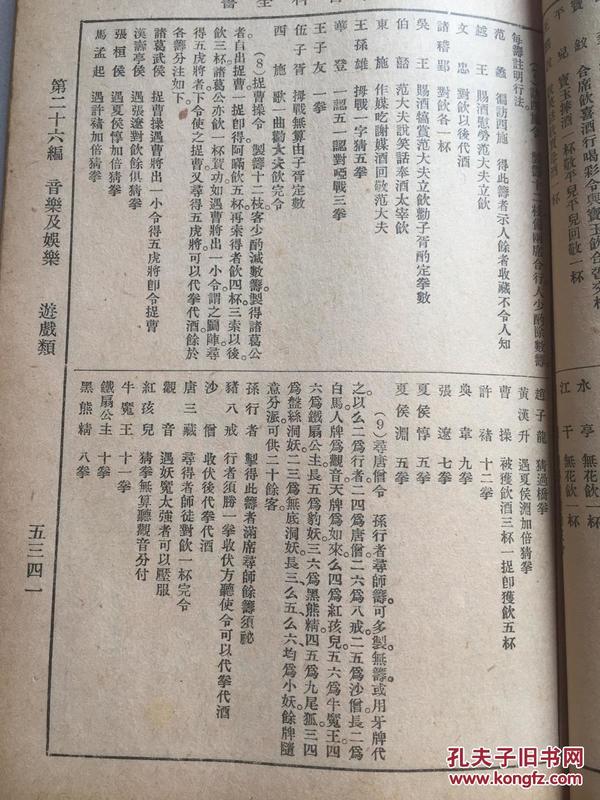 每籌註明行法
范蠡 徧訪西施 得此籌者示人餘者收藏不令人知
越王 賜酒慰勞范大夫立飲
文忠 對飲以後代酒
諸稽郢 對飲各一杯
吳王 賜酒犒賞范大夫立飲勸子胥酌定拳數
伯嚭 范大夫說笑話奉酒太宰飲
東施 作媒吃謝媒酒回敬范大夫
王孫雄 拇戰一字猜五拳
寒登 一認五一認對啞戰三拳
王子友 一拳
伍子胥 拇戰無算由子胥定數
西施 歌一曲勸大夫飲完令
(8)捉曹操令 製籌十二枝客少酌減數籌製得諸葛公
者自出捉曹一捉卽得阿瞞飲五杯再索得者飲四杯三索以後
飲三杯諸葛公亦飲一杯賀功如遇曹將出一小令謂之鬭陣尋
得五虎將者下令使之捉曹又尋得五虎將可以代拳代酒餘於
各籌分注如下
諸葛武侯 捉曹操遇曹將出一小令得五虎將卽令捉曹
漢壽亭侯 遇張遼對飲餘俱猜拳
張桓侯 遇夏侯惇加倍猜拳
馬孟起 遇許褚加倍猜拳
趙子龍 猜過橋拳
黃漢升 遇夏侯淵加倍猜拳
曹操 被獲飲酒三杯一捉卽獲飲五杯
許褚 十二拳
典韋 九拳
張遼 七拳
夏侯惇 五拳
夏侯淵 五拳
(9)尋唐僧令 孫行者尋師籌可多製無籌或用牙牌代
之以么二爲行者二四爲唐僧二六爲八戒二五爲沙僧長二爲
白馬人牌爲觀音天牌爲如來么四爲紅孩兒五六爲牛魔王四
六爲鐵扇公主長五爲豹妖三六爲黑熊精四五爲九尾狐三四
爲盤絲洞妖二三爲無底洞妖長三么五么六均爲小妖餘牌隨
意分派可供二十餘客
孫行者 掣得此籌者滿席尋師餘籌須祕
豬八戒 行者須勝一拳收伏方聽使令可以代拳代酒
沙僧 收伏後代拳代酒
唐三藏 尋得者師徒對飲一杯完令
觀音 遇妖魔太強者可以壓服
紅孩兒 猜拳無算聽觀音分付
牛魔王 十一拳
鐵扇公主 十拳
黑熊精 八拳
第二十六編 音樂及娛樂 遊戲類
五三四一
孔夫子旧书网
www.kongfz.com